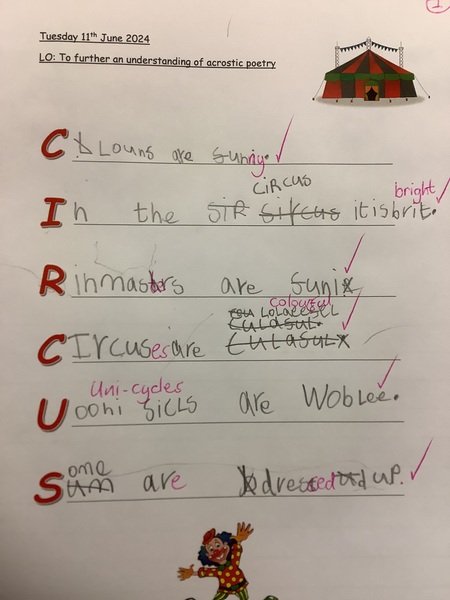 1
Tuesday 11th June 2024
LO: To further an understanding of acrostic poetry
CLouns are sunny.
circus
bright
In the sir sircus it is brit.
Rinmastrs are suni
colourful
CIrcuses are culasul
Uni-cycles
Uooni sicls are Woblee.
ome
Sum are dressed up.